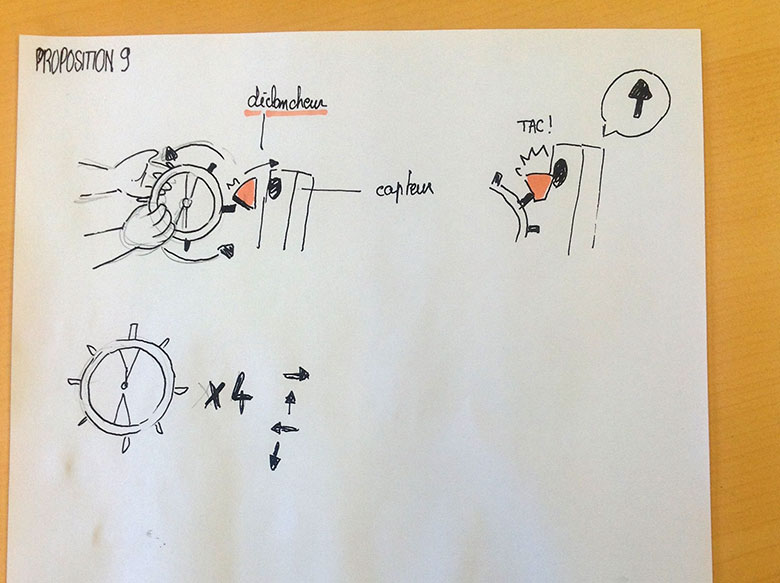 PROPOSITION 9
déclancheur
TAC!
capteur
X4